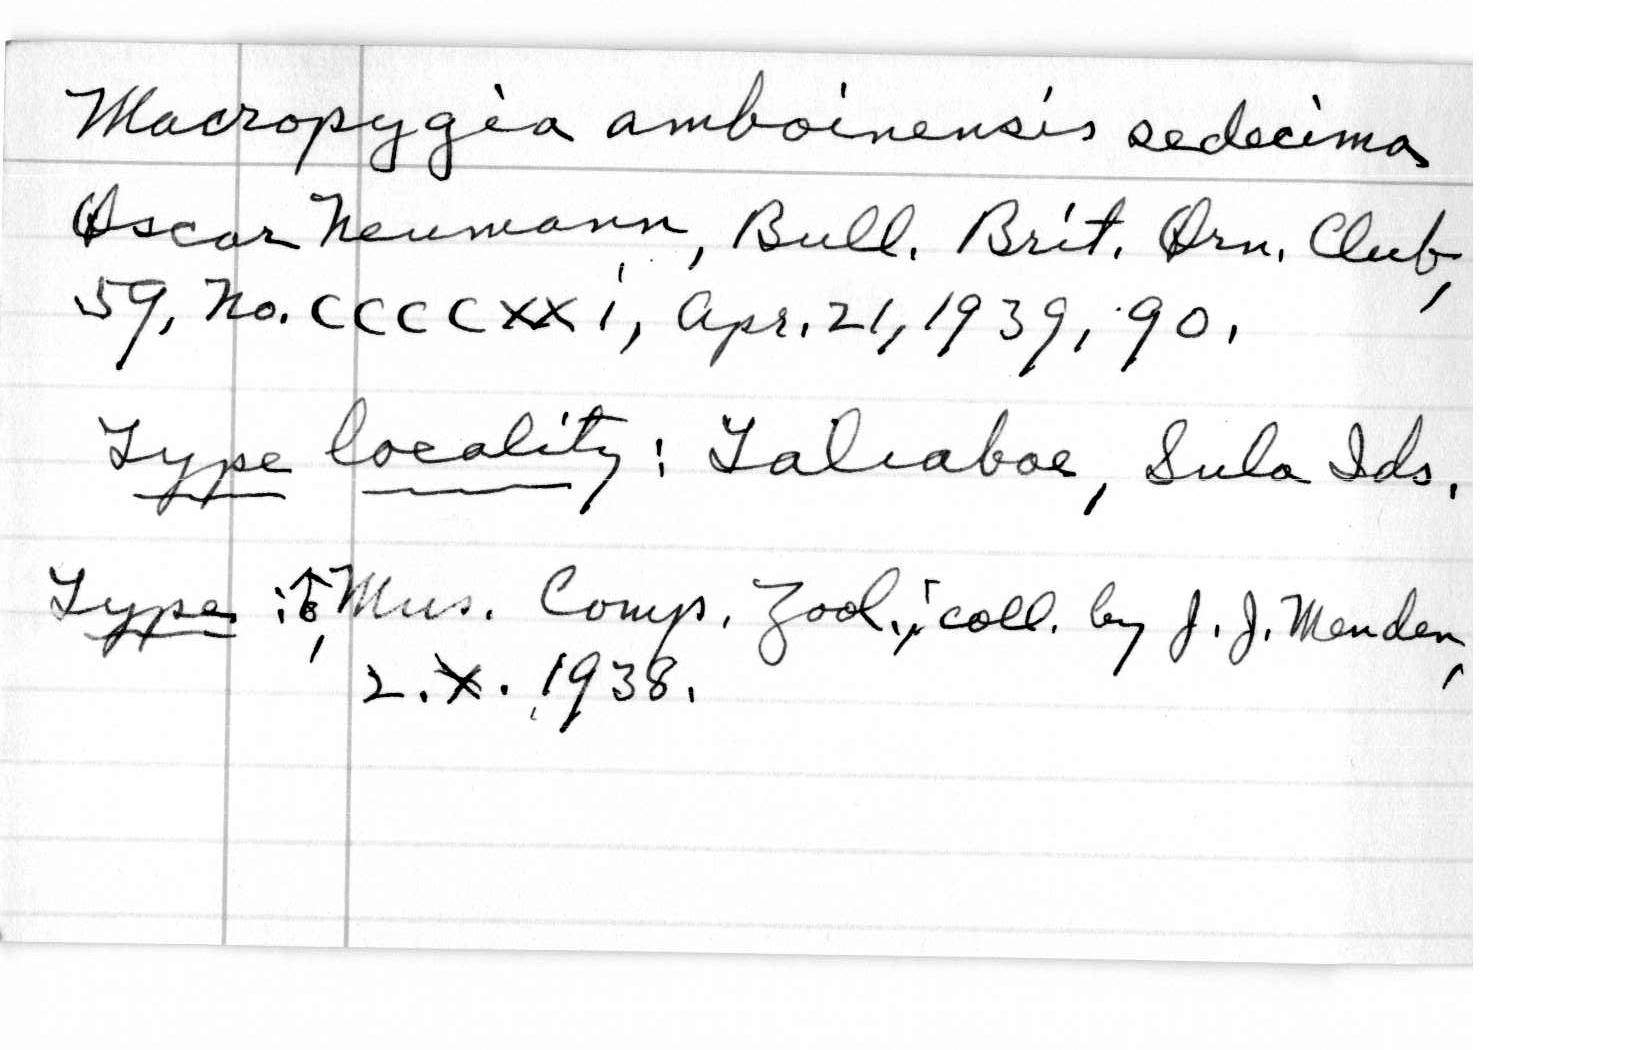 Macropygia amboinensis sedecima
Oscar Neumann, Bull. Brit. Orn. Club,
59, No. CCCCXXi, Apr. 21, 1939, 90.
Type locality: Taliaboe, Sula Ids.
Type: ♂, Mus. Comp. Zool.; coll. by J. J. Menden,
2.X.1938.